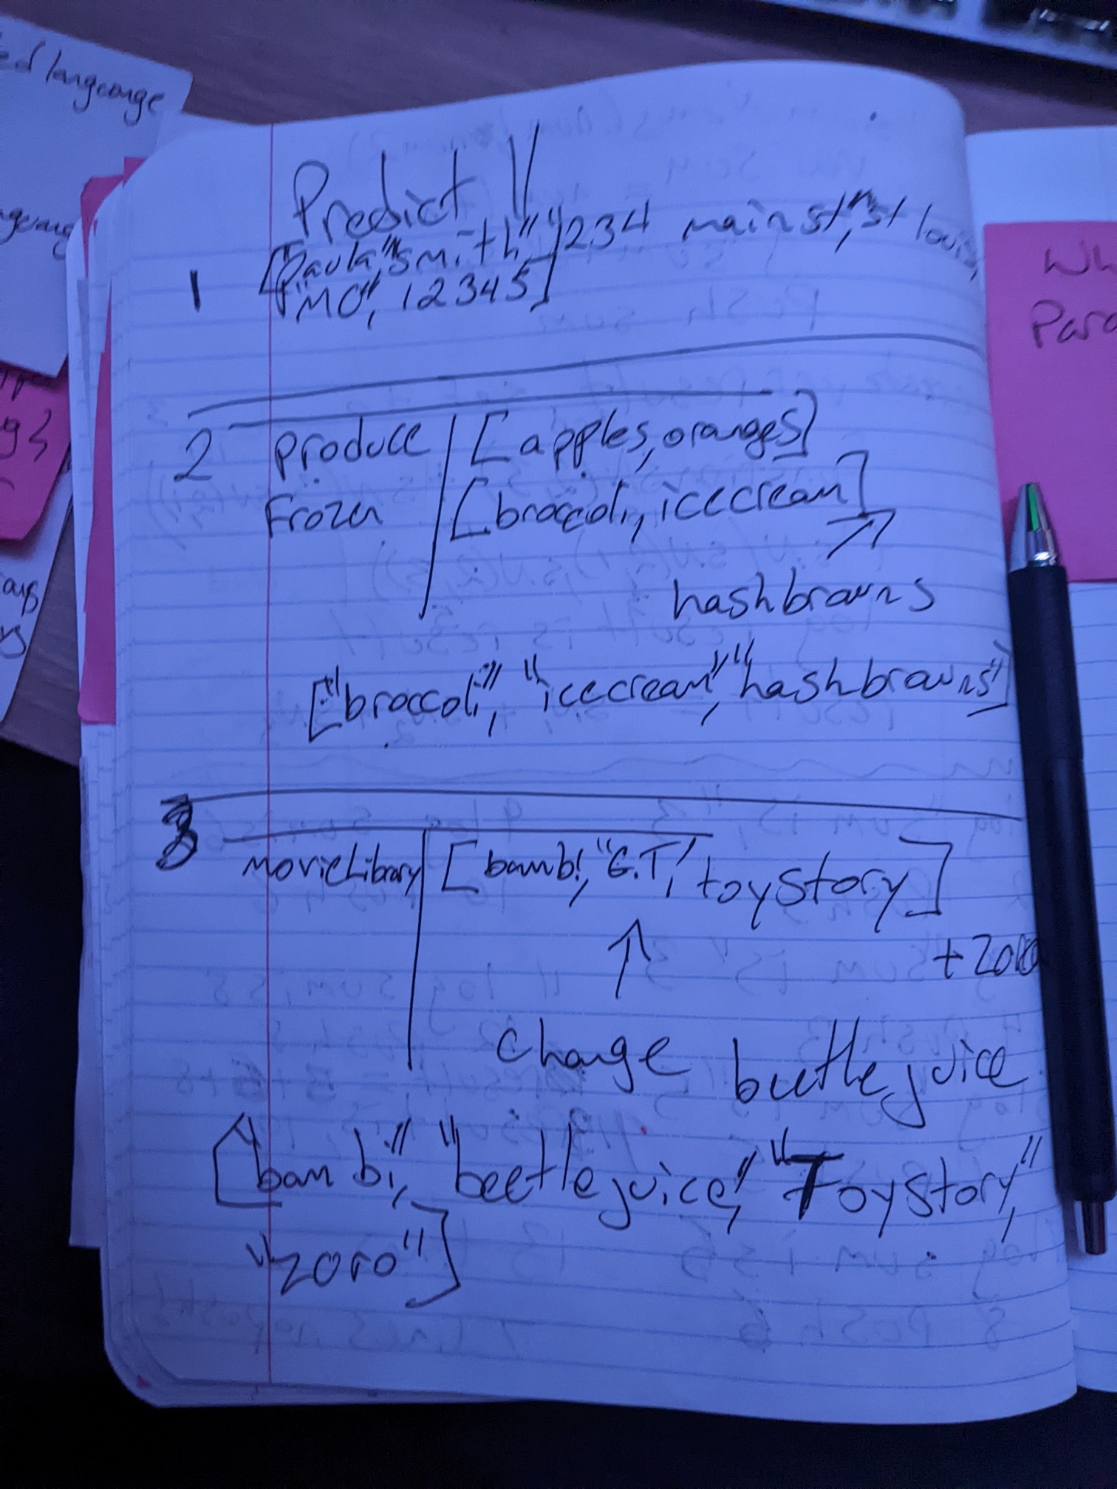 ed language
Predict V
1 ["Paula", "Smith", "1234 main st", "st louis,
"MO", 12345]
Wh
Para
2 produce [apples, oranges]
Frozen [broccoli, icecream]
hashbrowns
["broccoli", "icecream", "hashbrowns"]
3 movieLibrary [bambi, "E.T", toyStory]
+ zoro
change beetlejuice
["bambi", "beetlejuice", "Toystory",
"zoro"]